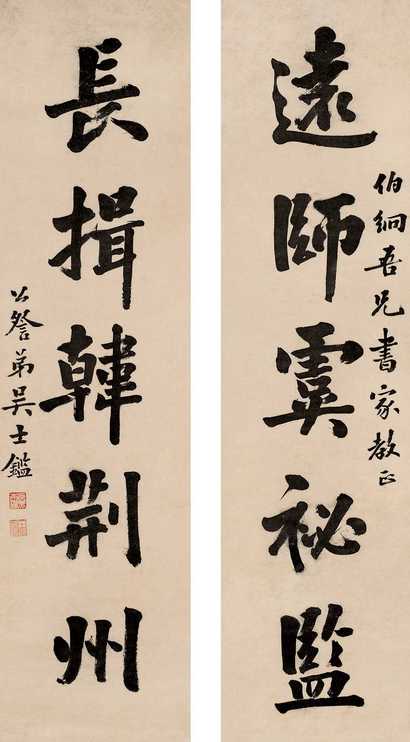 遠師虞秘監
伯絅吾兄書家教正
長揖韓荊州
公詧弟吳士鑑